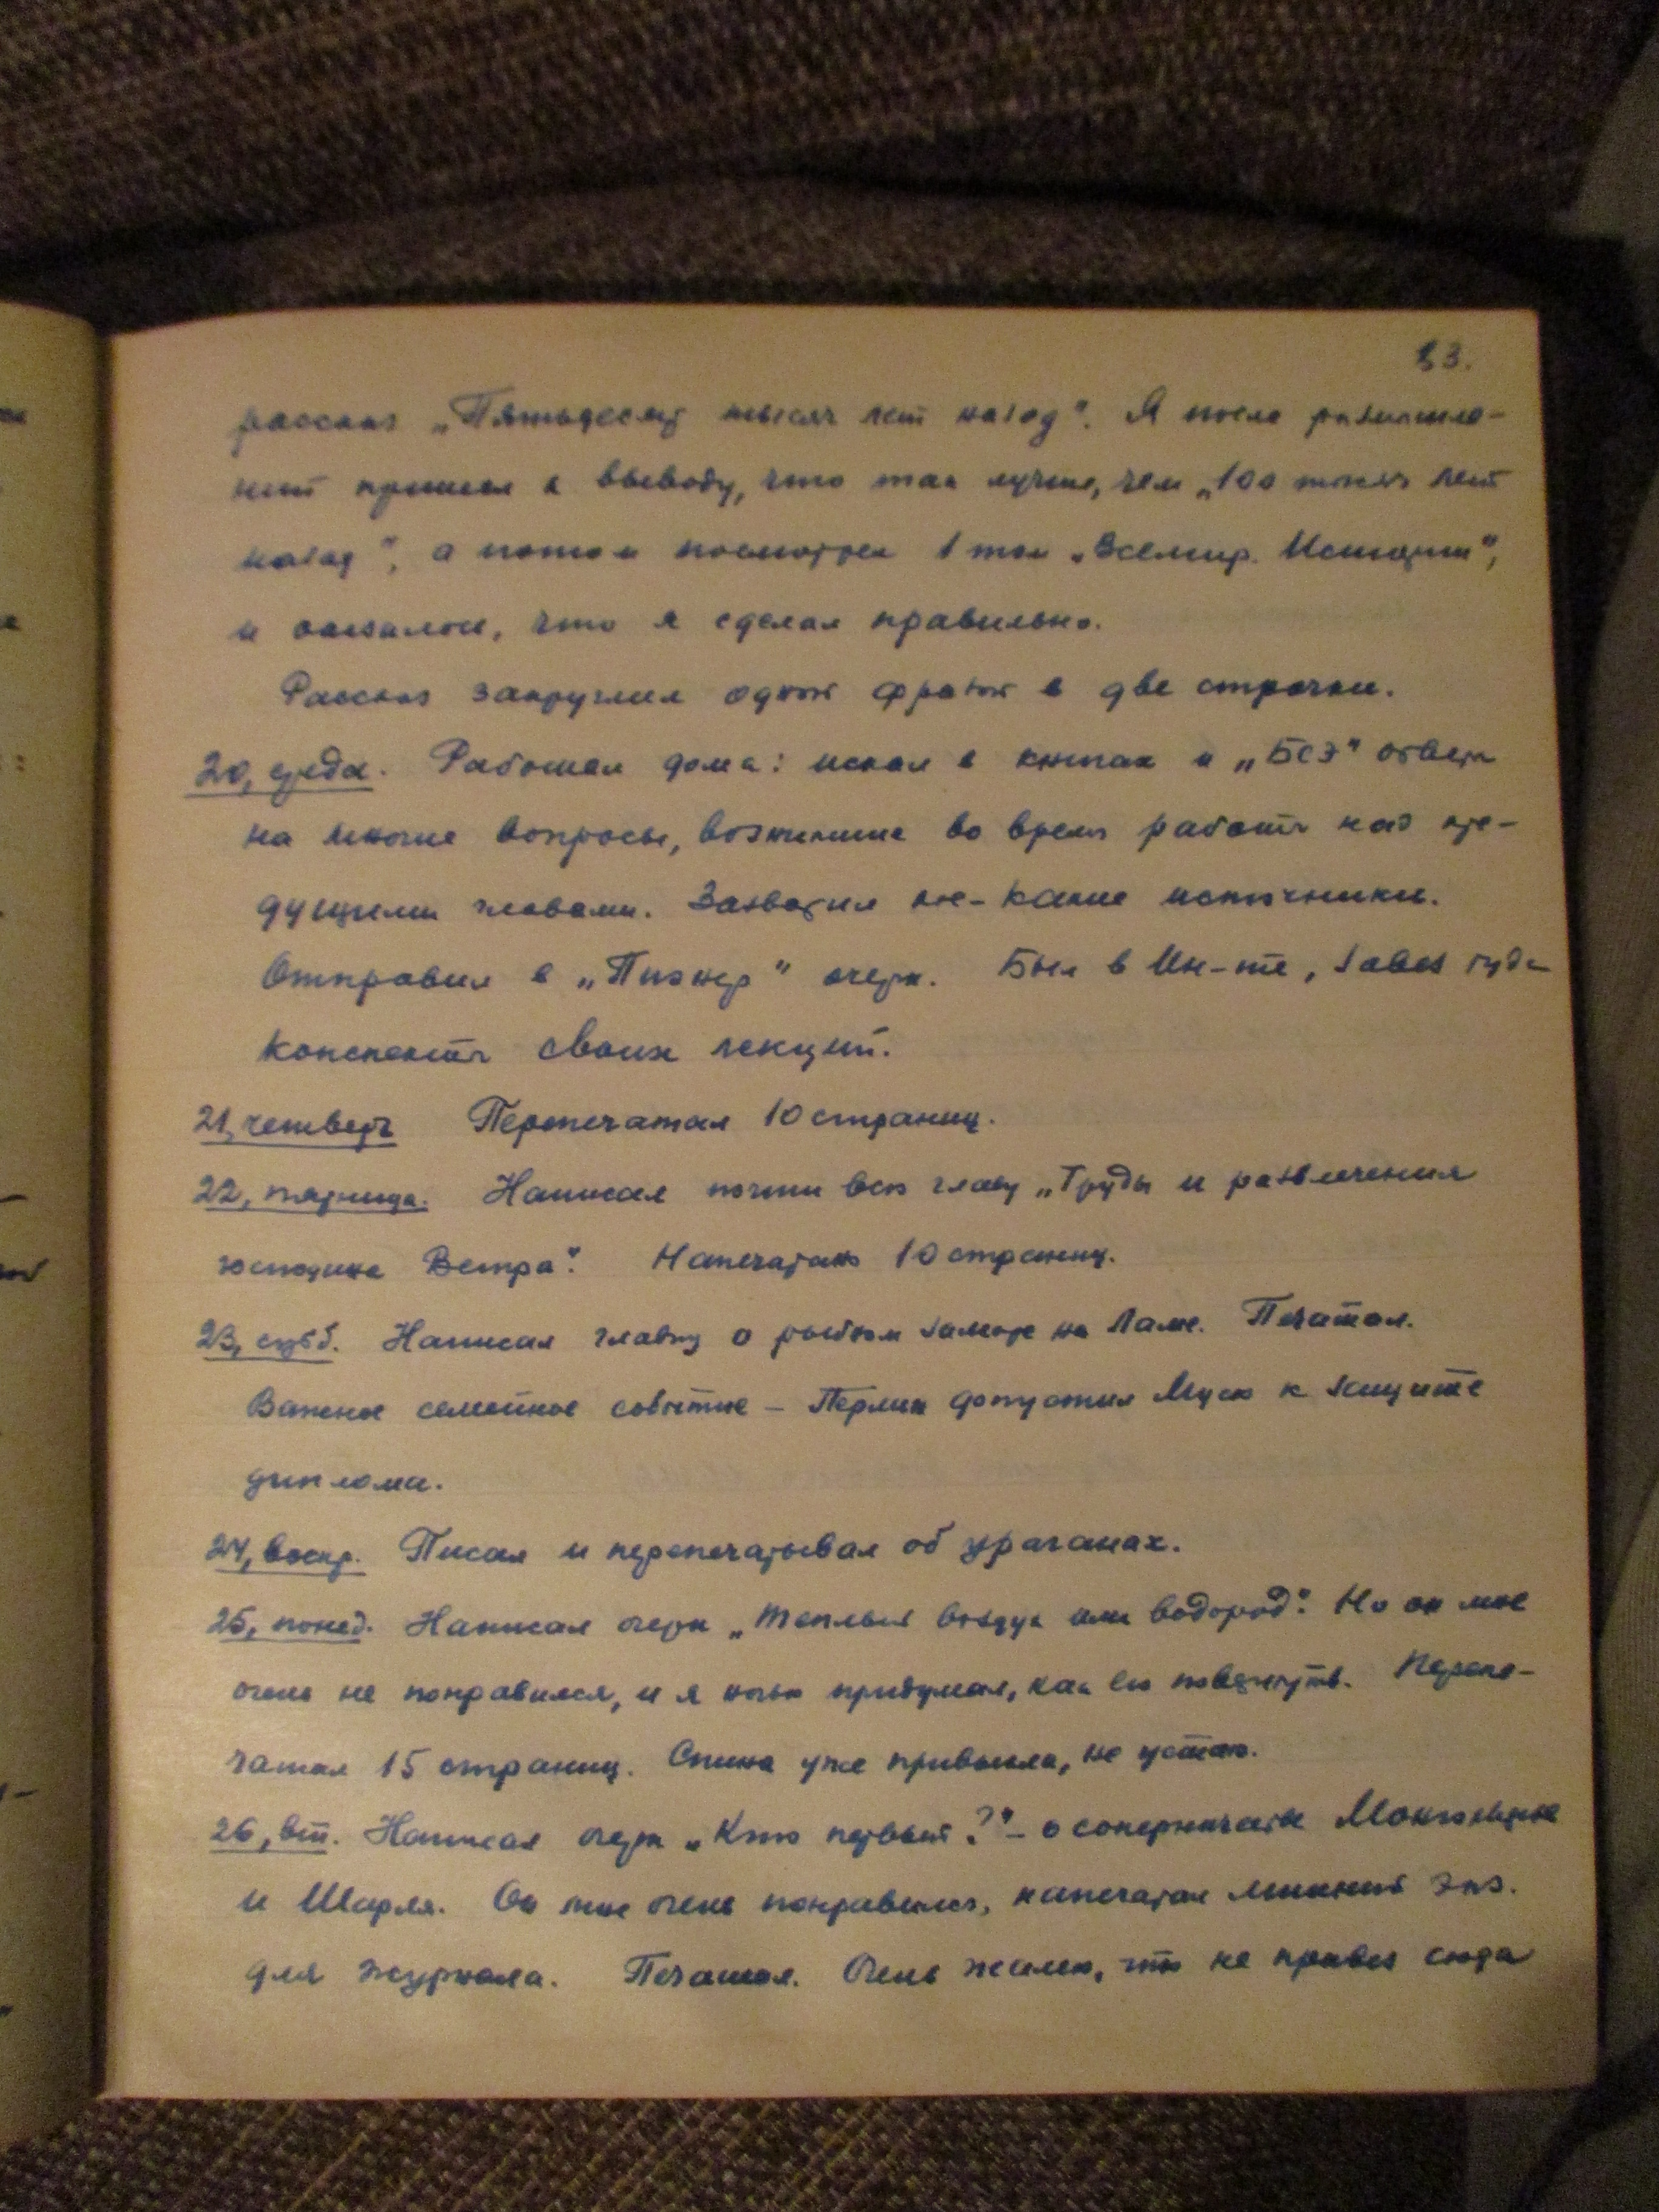 53.
рассказ „Пятьдесят тысяч лет назад". Я после размышле-
ний пришел к выводу, что так лучше, чем „100 тысяч лет
назад", а потом посмотрел 1 том „Всемир. Истории",
и оказалось, что я сделал правильно.
Рассказ закруглил одной фразой в две строчки.
20, среда. Работал дома: искал в книгах и „БСЭ" ответы
на многие вопросы, возникшие во время работы над пре-
дущими главами. Захватил кое-какие источники.
Отправил в „Пионер" очерк. Был в Ин-те, завез туда
конспекты своих лекций.
21, четверг Перепечатал 10 страниц.
22, пятница. Написал почти всю главу „Труды и развлечения
господина Ветра". Напечатано 10 страниц.
23, субб. Написал главку о рыбном заморе на Ламе. Печатал.
Важное семейное событие – Перлин допустил Мусю к защите
диплома.
24, воскр. Писал и перепечатывал об ураганах.
25, понед. Написал очерк „Теплый воздух или водород". Но он мне
очень не понравился, и я ночью придумал, как его повернуть. Перепе-
чатал 15 страниц. Спина уже привыкла, не устаю.
26, вт. Написал очерк „Кто первый?" – о соперничестве Монгольфье
и Шарля. Он мне очень понравился, напечатал лишний экз.
для журнала. Печатал. Очень жалею, что не привез сюда